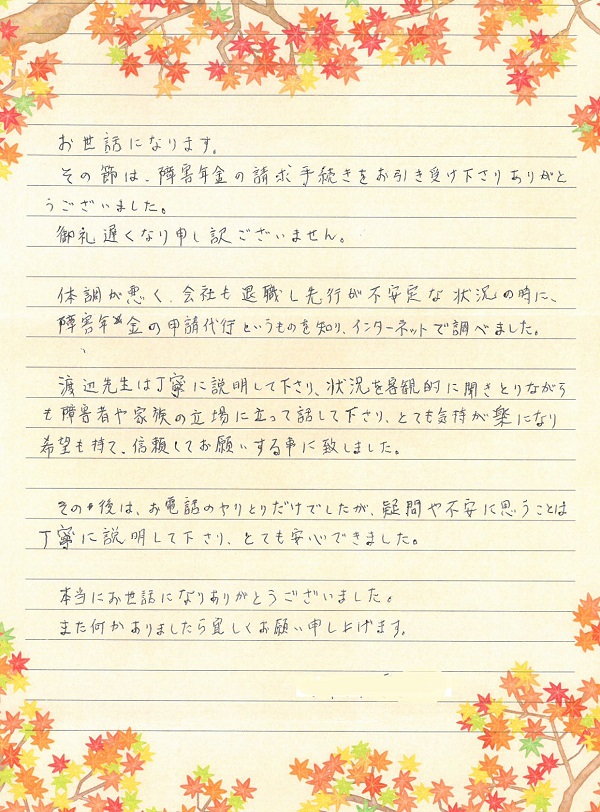 お世話になります。
その節は、障害年金の請求手続きをお引き受け下さりありがと
うございました。
御礼遅くなり申し訳ございません。
体調が悪く、会社も退職し先行が不安定な状況の時に、
障害年金の申請代行というものを知り、インターネットで調べました。
渡辺先生は丁寧に説明して下さり、状況を客観的に聞きとりながら
も障害者や家族の立場に立って話して下さり、とても気持が楽になり
希望も持て、信頼してお願いする事に致しました。
その後は、お電話のやりとりだけでしたが、疑問や不安に思うことは
丁寧に説明して下さり、とても安心できました。
本当にお世話になりありがとうございました。
また何かありましたら宜しくお願い申し上げます。